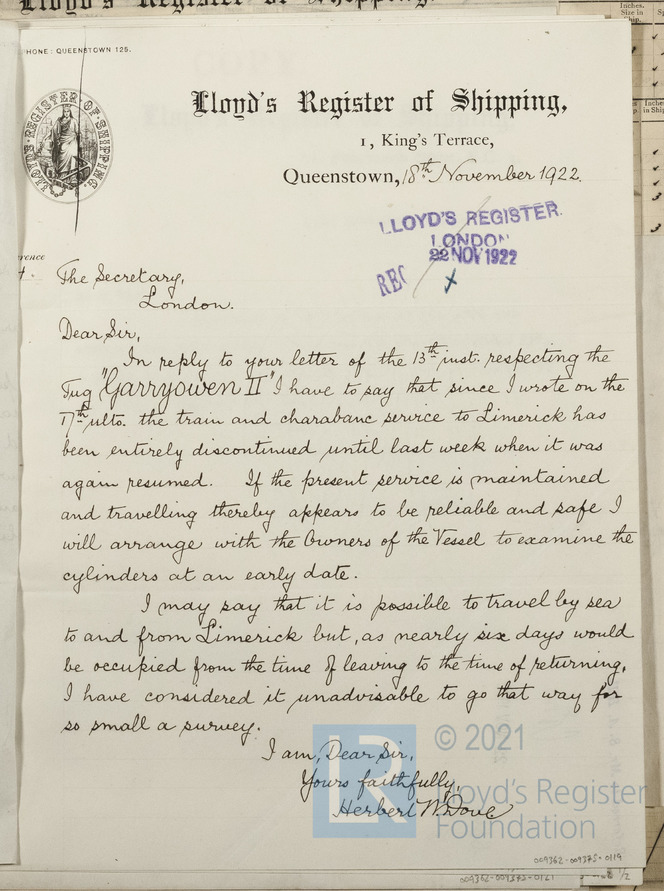 Lloyd's Register of Shipping.
Inches.
Size in
Ship.
PHONE: QUEENSTOWN 125.
LLOYD'S REGISTER OF SHIPPING.
Lloyd's Register of Shipping,
1, King's Terrace,
Queenstown, 18th November 1922.
LLOYD'S REGISTER.
LONDON
22 NOV 1922
REC
The Secretary,
London.
Dear Sir,
In reply to your letter of the 13th inst. respecting the
Tug "Garryowen II" I have to say that since I wrote on the
17th ulto. the train and charabanc service to Limerick has
been entirely discontinued until last week when it was
again resumed. If the present service is maintained
and travelling thereby appears to be reliable and safe I
will arrange with the Owners of the Vessel to examine the
cylinders at an early date.
I may say that it is possible to travel by sea
to and from Limerick but, as nearly six days would
be occupied from the time of leaving to the time of returning,
I have considered it unadvisable to go that way for
so small a survey.
I am, Dear Sir,
Yours faithfully,
Herbert W. Dove
LR © 2021
Lloyd's Register
Foundation
009362-009375-0119
009362-009375-0121